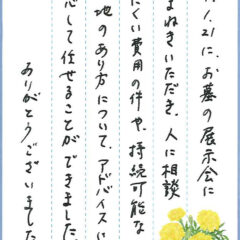 1.21に、お墓の展示会に
まねきいただき、人に相談
にくい費用の件や、持続可能な
地のあり方について、アドバイスに
心して任せることができました。
ありがとうございました